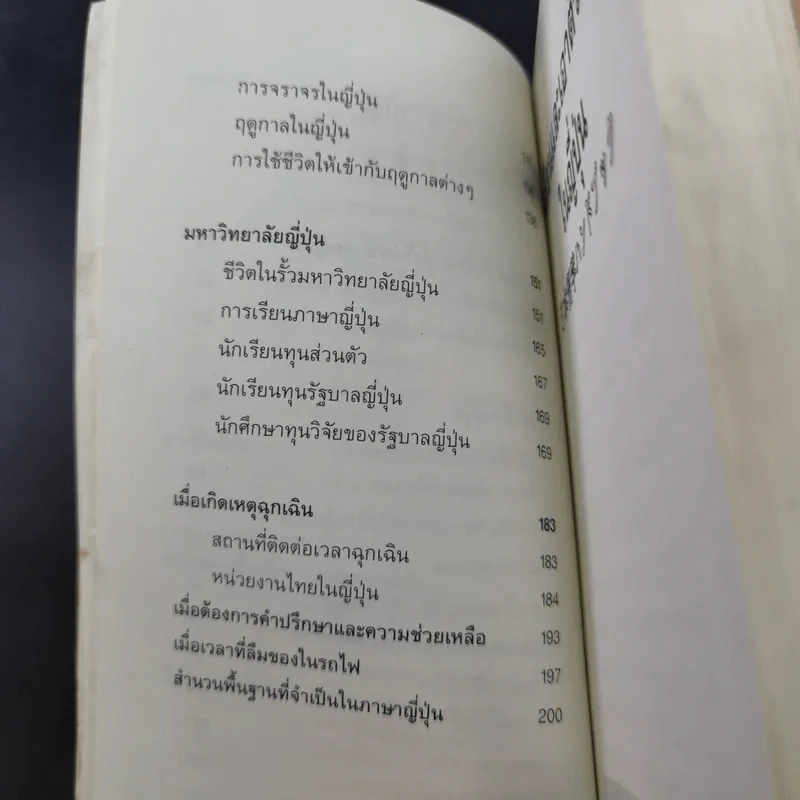 การจราจรในญี่ปุ่น
ฤดูกาลในญี่ปุ่น
การใช้ชีวิตให้เข้ากับฤดูกาลต่างๆ
มหาวิทยาลัยญี่ปุ่น 151
ชีวิตในรั้วมหาวิทยาลัยญี่ปุ่น 151
การเรียนภาษาญี่ปุ่น 165
นักเรียนทุนส่วนตัว 167
นักเรียนทุนรัฐบาลญี่ปุ่น 169
นักศึกษาทุนวิจัยของรัฐบาลญี่ปุ่น 169
เมื่อเกิดเหตุฉุกเฉิน 183
สถานที่ติดต่อเวลาฉุกเฉิน 183
หน่วยงานไทยในญี่ปุ่น 184
เมื่อต้องการคำปรึกษาและความช่วยเหลือ 193
เมื่อเวลาที่ลืมของในรถไฟ 197
สำนวนพื้นฐานที่จำเป็นในภาษาญี่ปุ่น 200
ในญี่ปุ่น